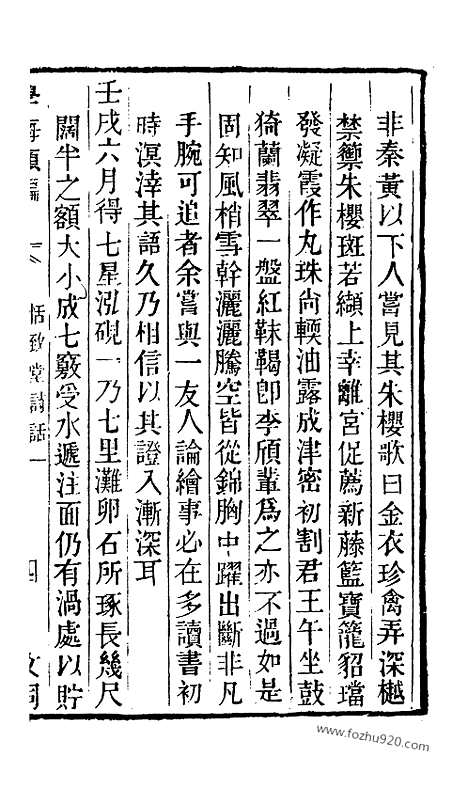 非秦黃以下人嘗見其朱櫻歌曰金衣珍禽弄深樾
禁籞朱櫻斑若纈上幸離宮促薦新藤籃寶籠貂璫
發凝霞作丸珠尚輭油露成津蜜初割君王午坐鼓
猗蘭翡翠一盤紅靺鞨卽李頎輩爲之亦不過如是
固知風梢雪幹灑灑騰空皆從錦胸中躍出斷非凡
手腕可追者余嘗與一友人論繪事必在多讀書初
時溟涬其語久乃相信以其證入漸深耳
壬戌六月得七星泓硯一乃七里灘卵石所琢長幾尺
闊半之額大小成七竅受水遞注面仍有渦處以貯
學海類編
恬致堂詩話一
四
文詞
www.fozhu920.com